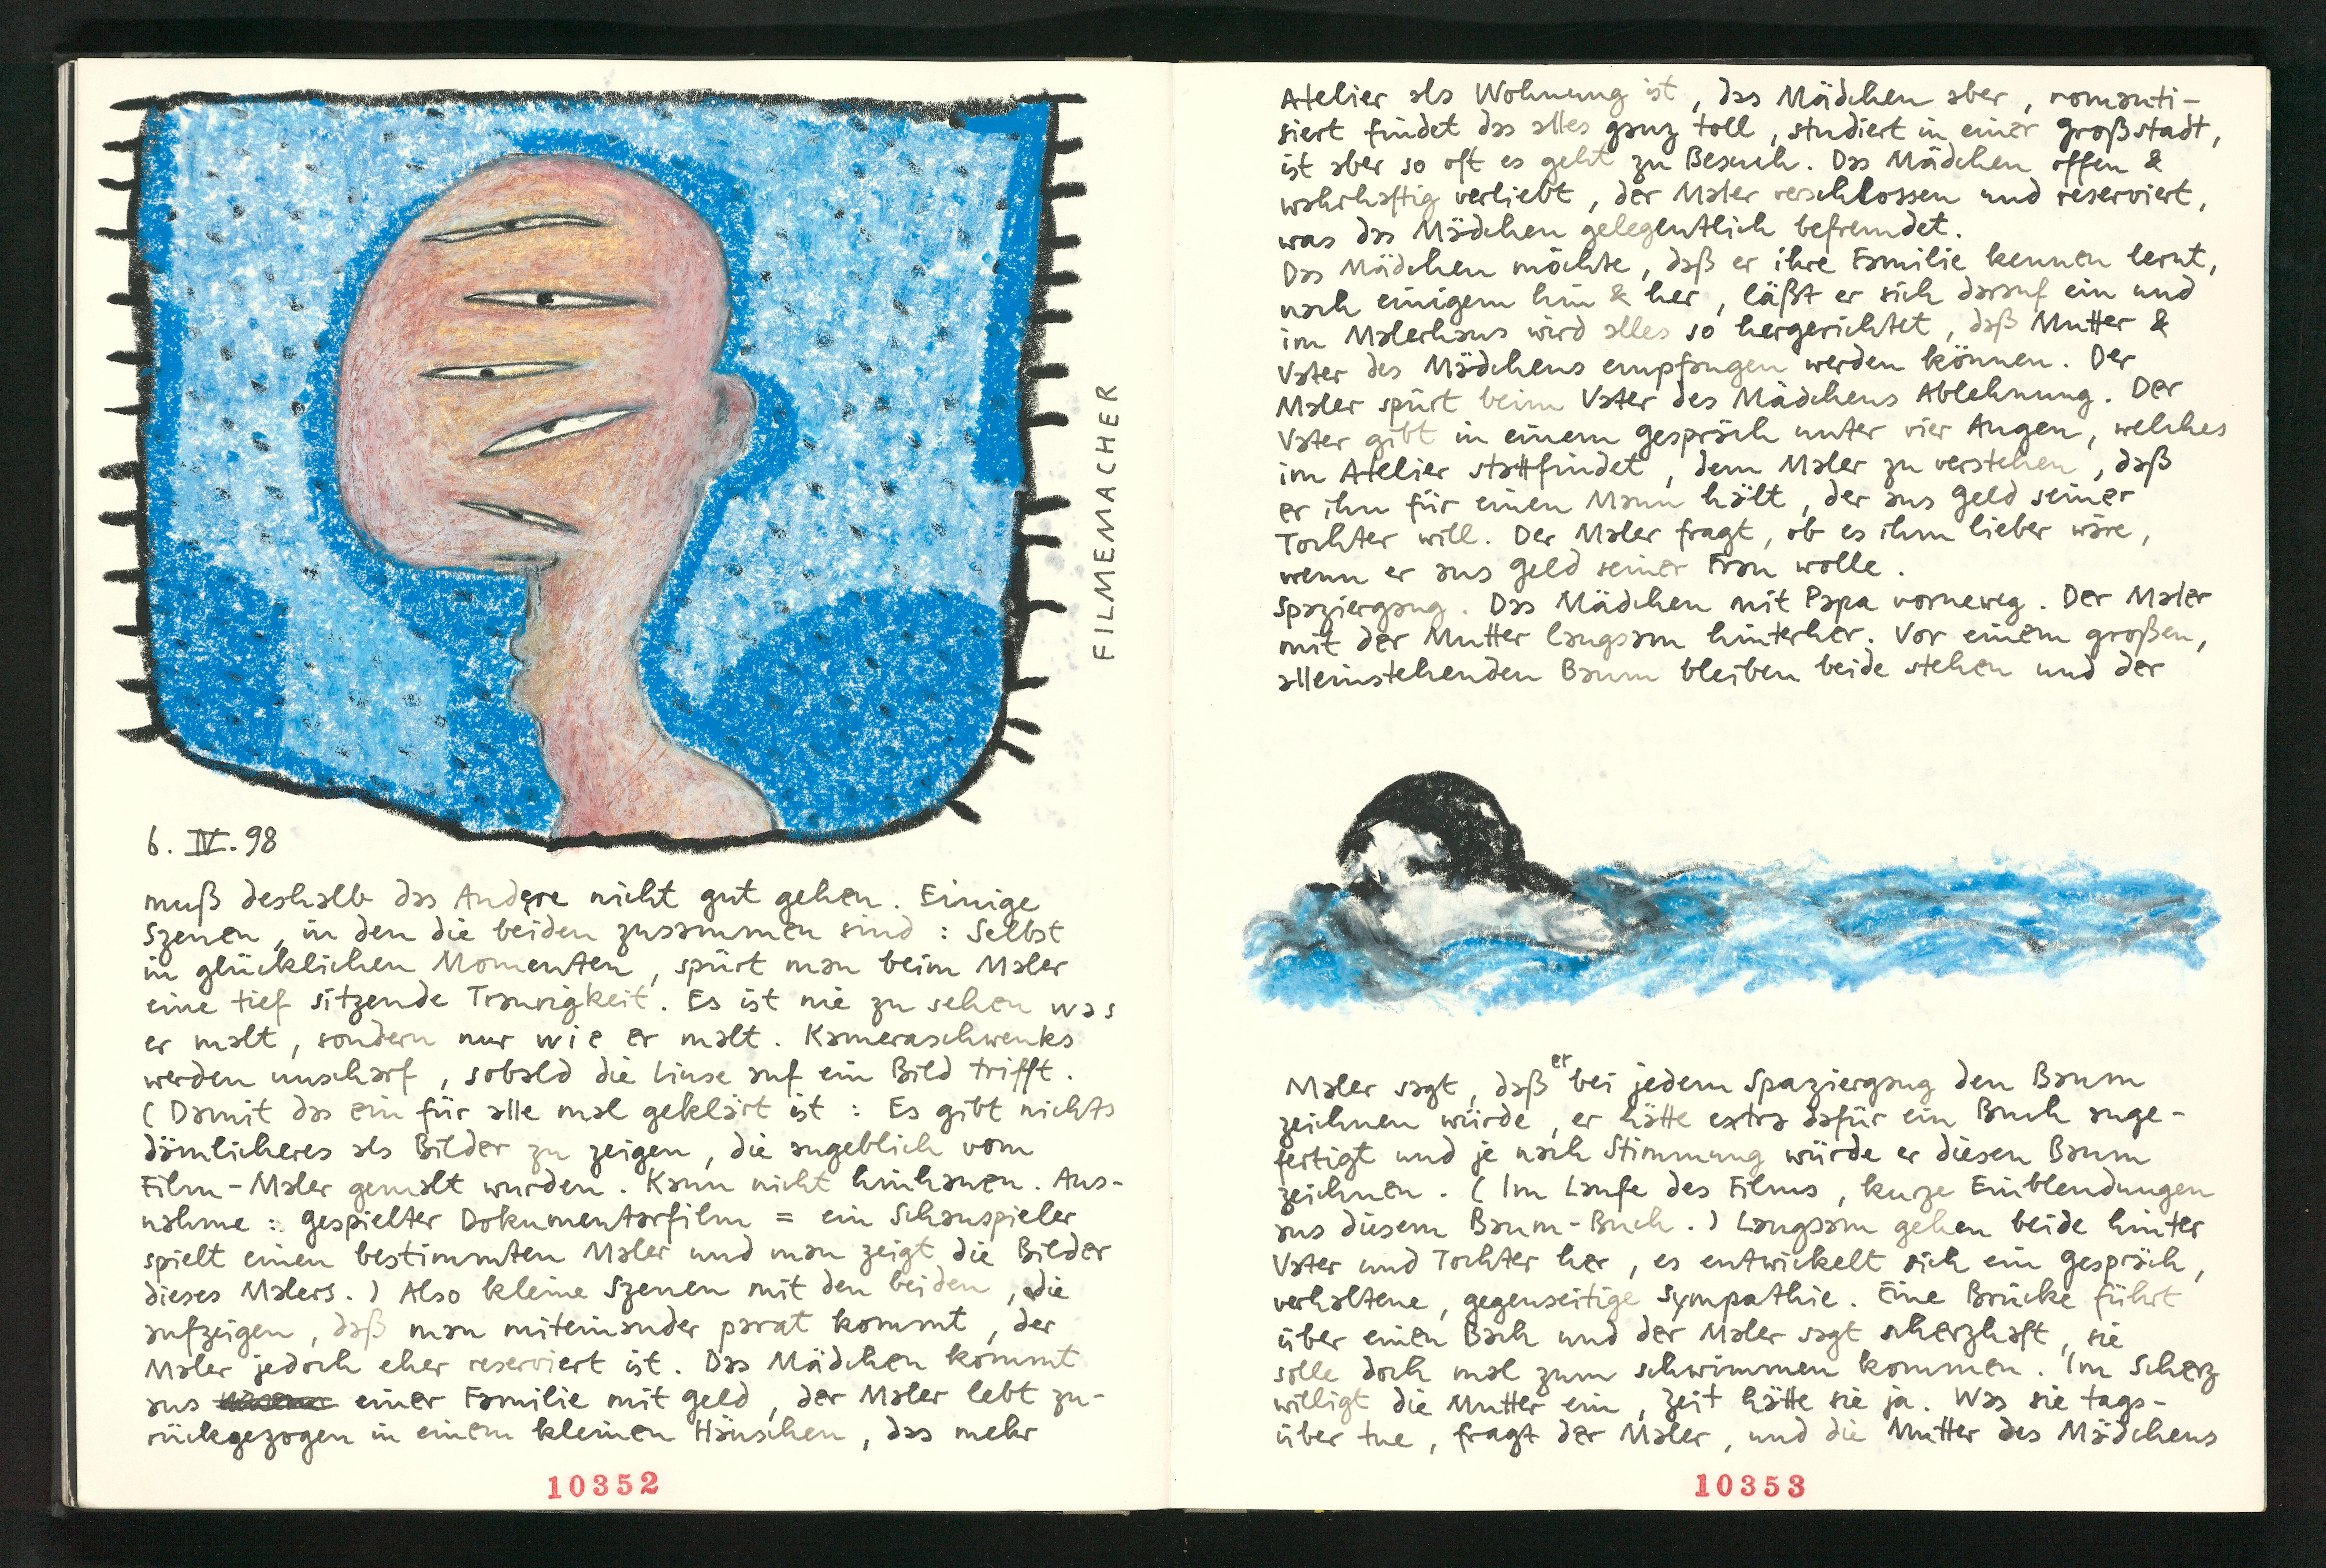 FILMEMACHER
6. IV. 98
muß deshalb das Andere nicht gut gehen. Einige
Szenen, in den die beiden zusammen sind: Selbst
in glücklichen Momenten, spürt man beim Maler
eine tief sitzende Traurigkeit. Es ist nie zu sehen was
er malt, sondern nur wie er malt. Kameraschwenks
werden unscharf, sobald die Linse auf ein Bild trifft.
(Damit das ein für alle mal geklärt ist: Es gibt nichts
dämlicheres als Bilder zu zeigen, die angeblich vom
Film-Maler gemalt wurden. Kann nicht hinhauen. Aus-
nahme: gespielter Dokumentarfilm = ein Schauspieler
spielt einen bestimmten Maler und man zeigt die Bilder
dieses Malers.) Also kleine Szenen mit den beiden, die
aufzeigen, daß man miteinander parat kommt, der
Maler jedoch eher reserviert ist. Das Mädchen kommt
aus einer Familie mit Geld, der Maler lebt zu-
rückgezogen in einem kleinen Häuschen, das mehr
10352
Atelier als Wohnung ist, das Mädchen aber, romanti-
siert findet das alles ganz toll, studiert in einer Großstadt,
ist aber so oft es geht zu Besuch. Das Mädchen offen &
wahrhaftig verliebt, der Maler verschlossen und reserviert,
was das Mädchen gelegentlich befremdet.
Das Mädchen möchte, daß er ihre Familie kennen lernt,
nach einigem hin & her, läßt er sich darauf ein und
im Malerhaus wird alles so hergerichtet, daß Mutter &
Vater des Mädchens empfangen werden können. Der
Maler spürt beim Vater des Mädchens Ablehnung. Der
Vater gibt in einem Gespräch unter vier Augen, welches
im Atelier stattfindet, dem Maler zu verstehen, daß
er ihn für einen Mann hält, der ans Geld seiner
Tochter will. Der Maler fragt, ob es ihm lieber wäre,
wenn er ans Geld seiner Frau wolle.
Spaziergang. Das Mädchen mit Papa vorneweg. Der Maler
mit der Mutter langsam hinterher. Vor einem großen,
alleinstehenden Baum bleiben beide stehen und der
Maler sagt, daß er bei jedem Spaziergang den Baum
zeichnen würde, er hätte extra dafür ein Buch ange-
fertigt und je nach Stimmung würde er diesen Baum
zeichnen. (Im Laufe des Films, kurze Einblendungen
aus diesem Baum-Buch.) Langsam gehen beide hinter
Vater und Tochter her, es entwickelt sich ein Gespräch,
verhaltene, gegenseitige Sympathie. Eine Brücke führt
über einen Bach und der Maler sagt scherzhaft, sie
solle doch mal zum schwimmen kommen. Im Scherz
willigt die Mutter ein, Zeit hätte sie ja. Was sie tags-
über tue, fragt der Maler, und die Mutter des Mädchens
10353